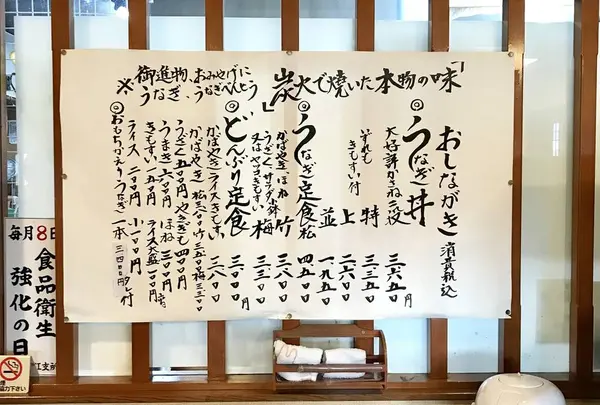 「炭火で焼いた本物の味」
※御進物、おみやげに
うなぎ、うなぎべんとう
おしながき 消費税込
◎うなぎ丼
大好評かさね二段 三六五〇円
いずれもきもすい付
特 三三五〇
上 二六〇〇
並 一九五〇
◎うなぎ定食
松 四五〇〇
かばやき、ほね 竹 三八〇〇
うざく、サラダ小鉢
又はやっこきもすい 梅 三三〇〇
◎どんぶり定食 三三〇〇円
かばやき ライスきもすい 三八〇〇
かばやき
うざく 一五〇〇円 やきぎも 四〇〇円
うまき 六〇〇円 ほね 三〇〇円
きもすい 一五〇円 ライス大盛 一〇〇円
ライス 二〇〇円 小 一〇〇円
◎おもちかえりうなぎ一本 三四〇〇 タレ付
毎月8日
食品衛生
強化の日